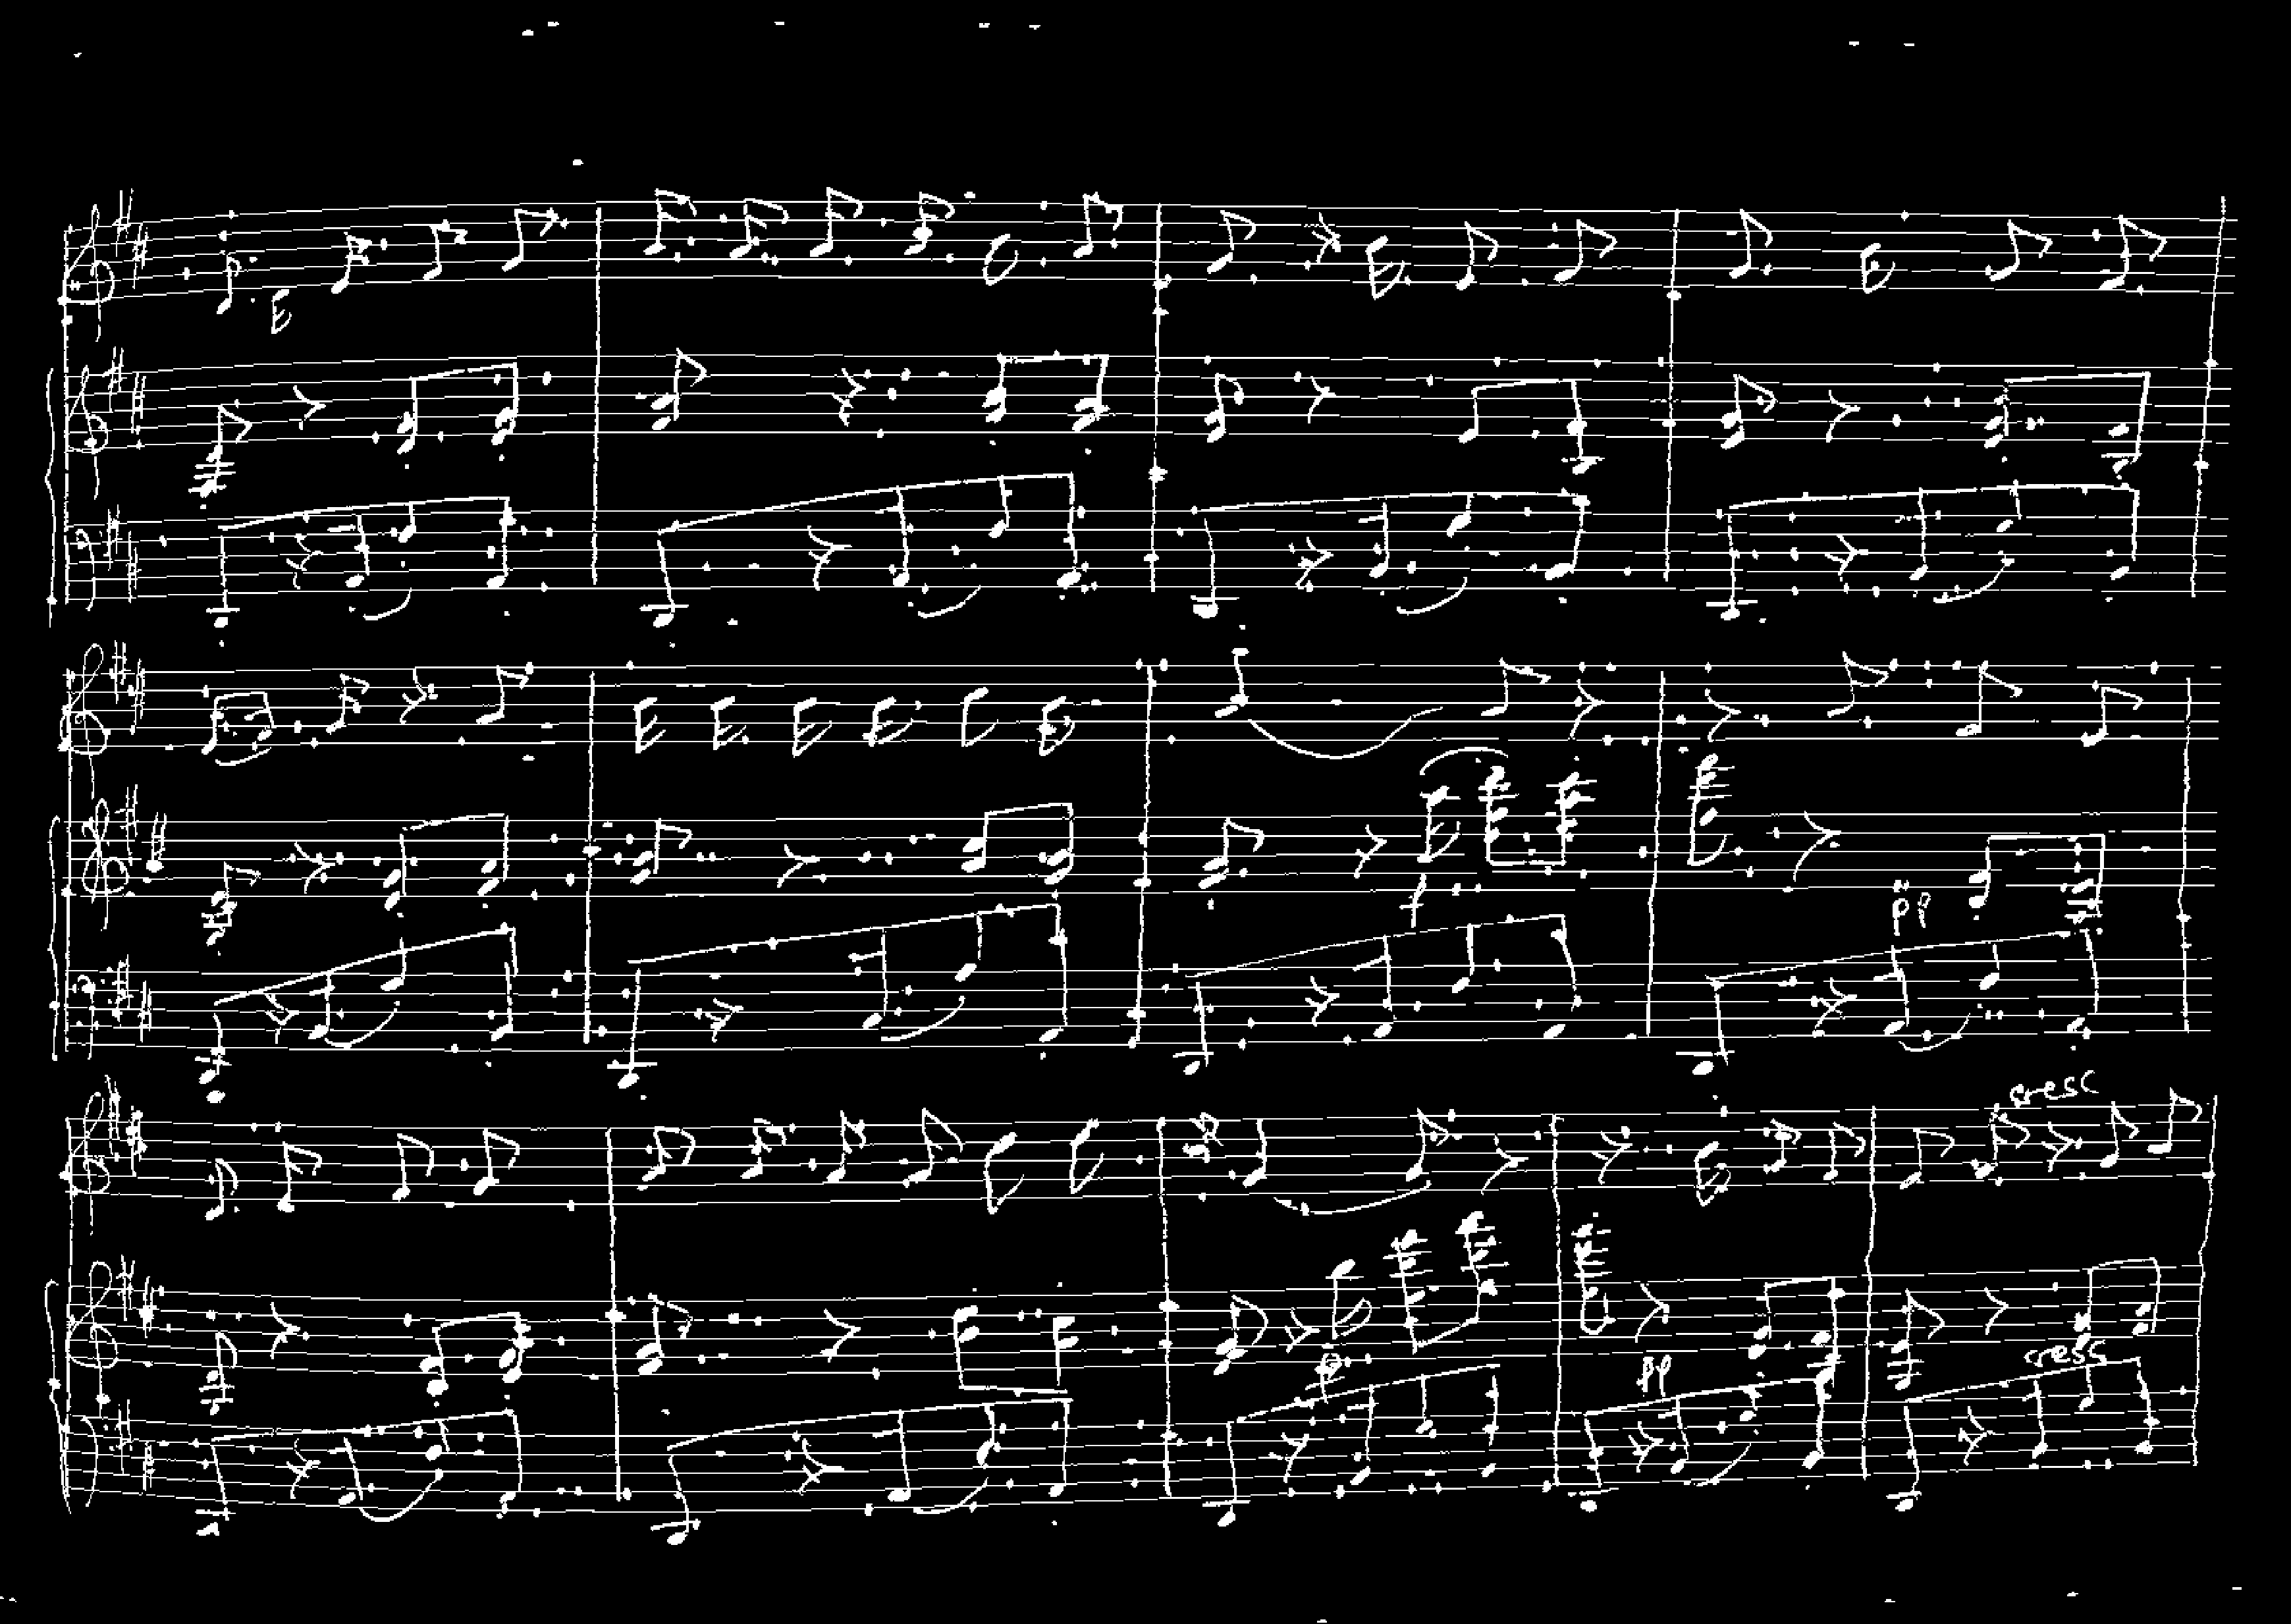 f
pp
cresc
p
pp
cresc